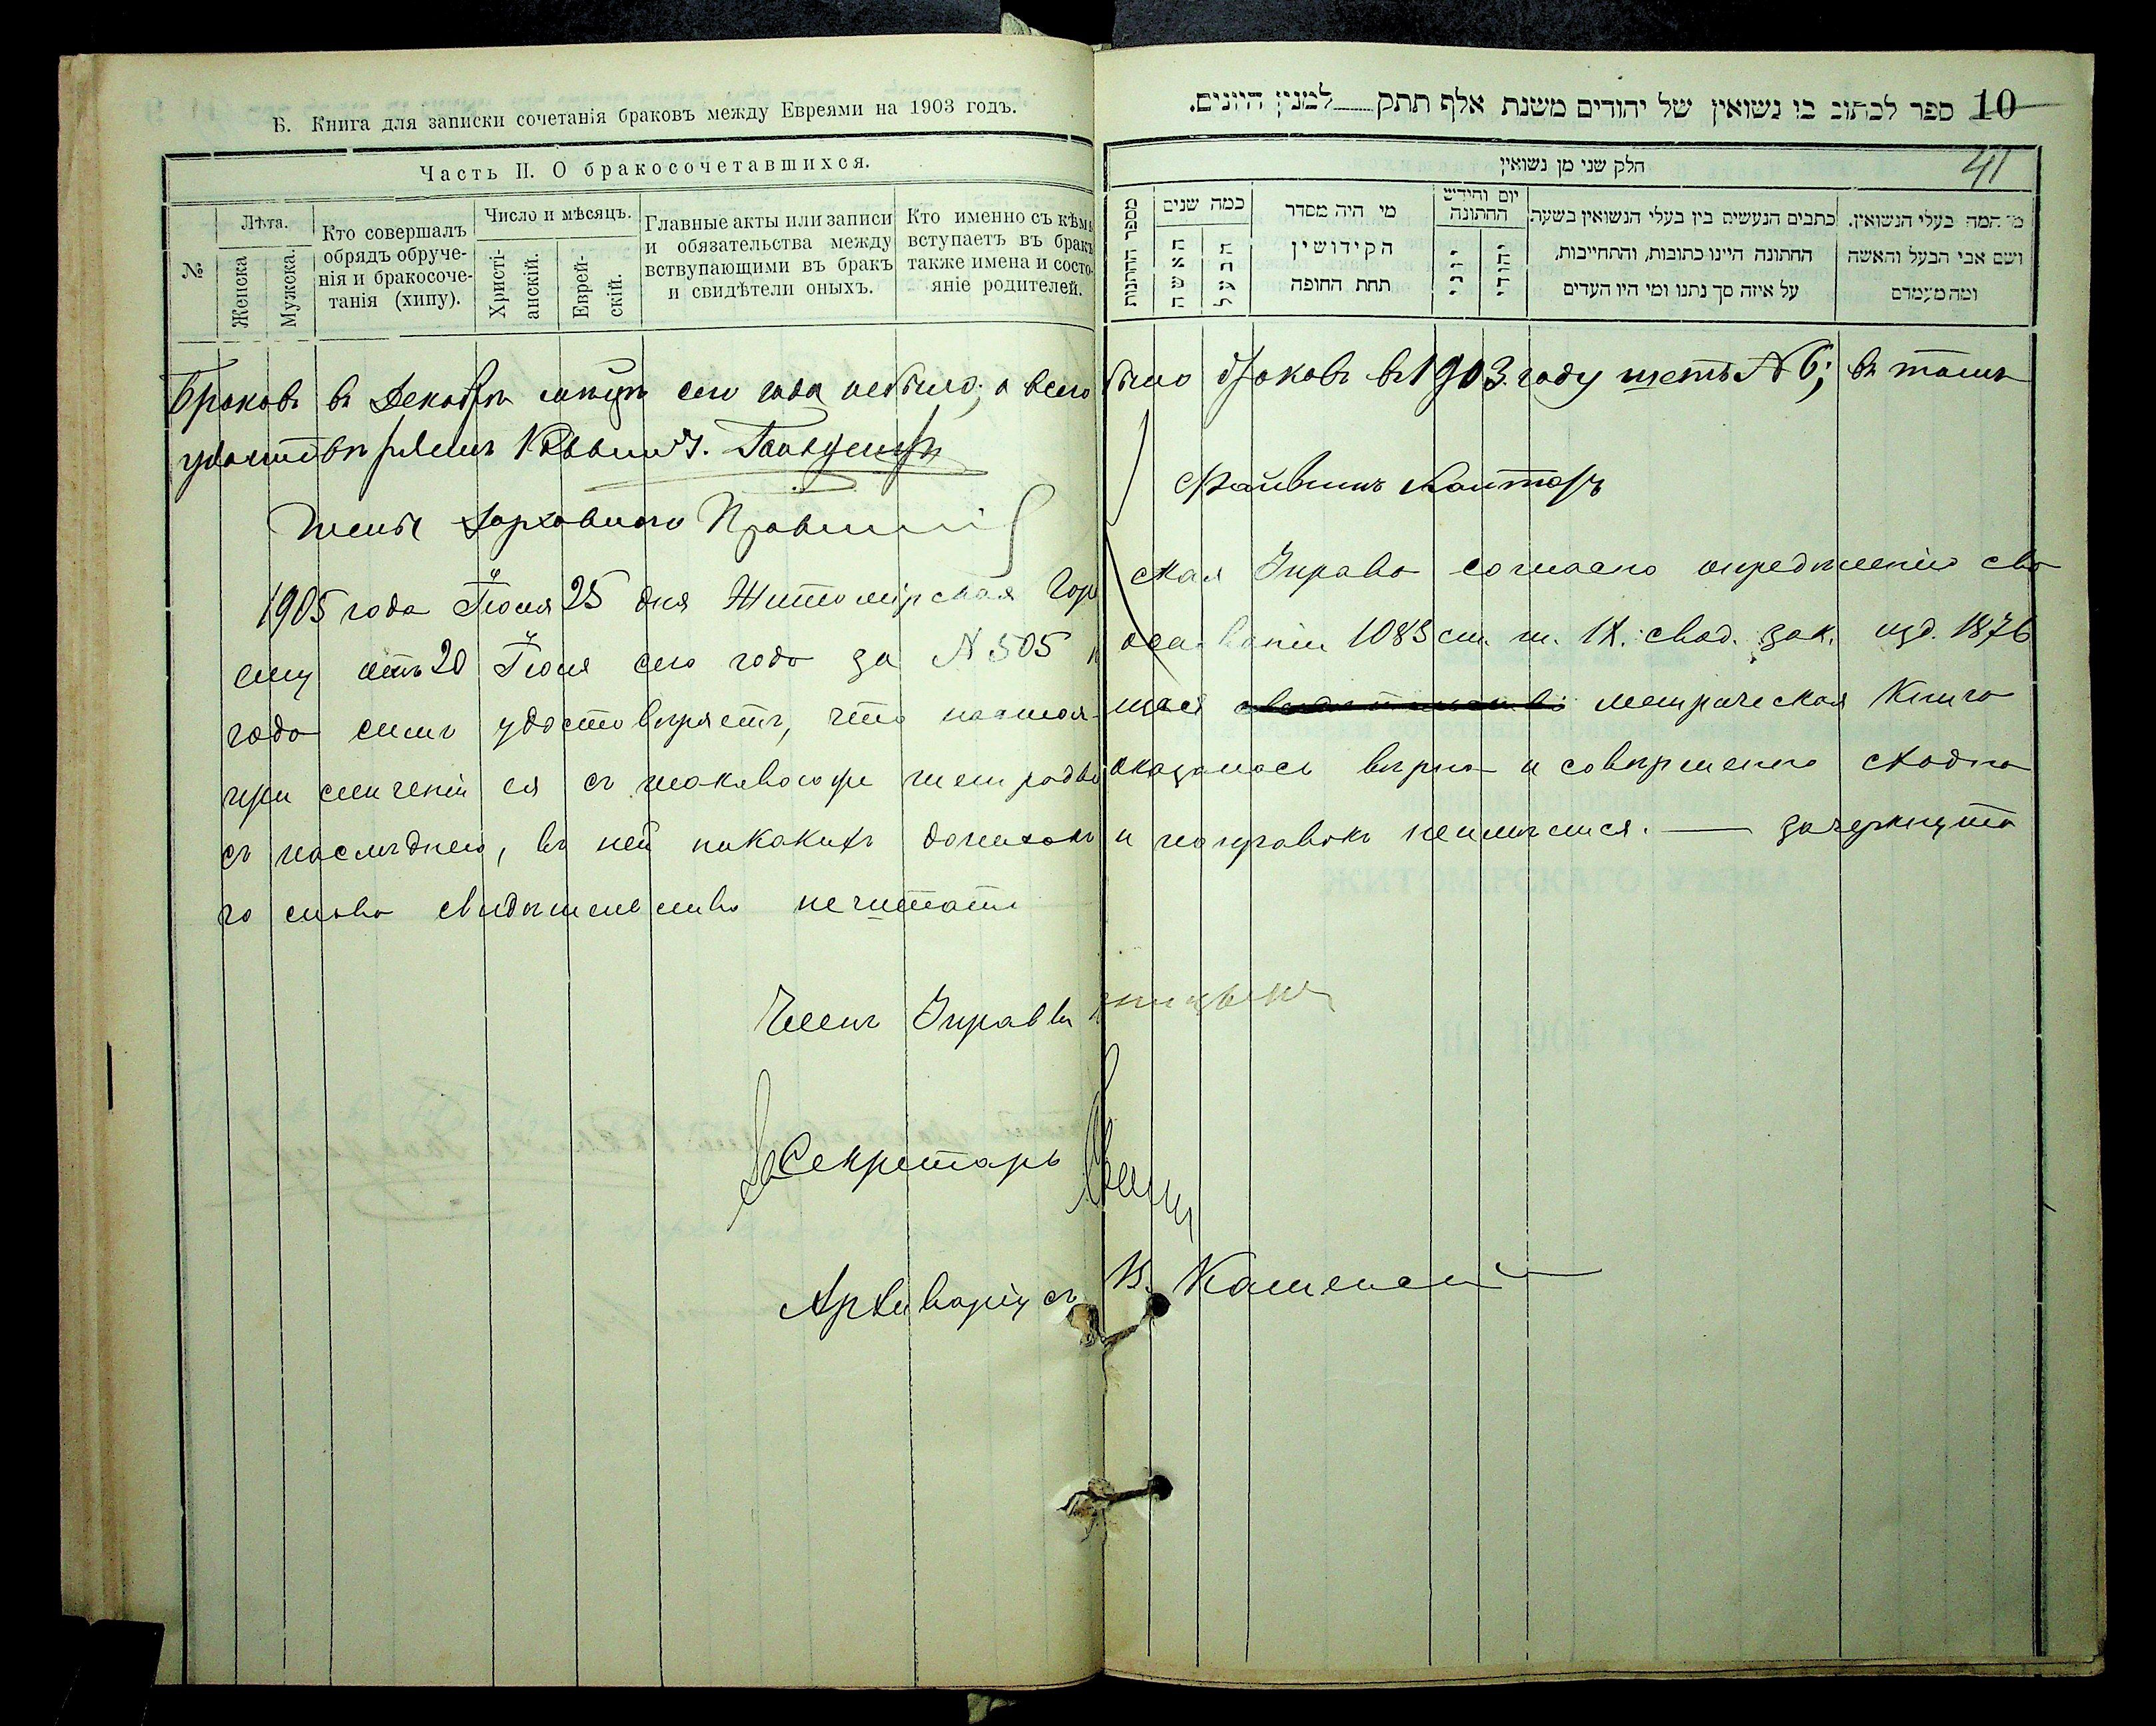 Б. Книга для записки сочетанія браковъ между Евреями на 1903 годъ.
Часть II. О бракосочетавшихся.
№
Лѣта.
Женска
Мужска.
Кто совершалъ
обрядъ обруче-
нія и бракосоче-
танія (хипу).
Число и мѣсяцъ.
Христі-
анскій.
Еврей-
скій.
Главные акты или записи
и обязательства между
вствупающими въ бракъ
и свидѣтели оныхъ.
Кто именно съ кѣмъ
вступаетъ въ бракъ
также имена и состо-
яніе родителей.
10 ספר לכתוב בו נשואין של יהודים משנת אלף תתק למנין היונים.
41
חלק שני מן נשואין
מספר החתונות
כמה שנים
האשה
הבעל
מי היה מסדר
הקידושין
תחת החופה
יום וחודש
החתונה
יוני
יהודי
כתבים הנעשים בין בעלי הנשואין בשעת
החתונה היינו כתובות, והתחייבות,
על איזה סך נתנו ומי היו העדים
מי המה בעלי הנשואין.
ושם אבי הבעל והאשה
ומה מעמדם
Браковъ въ Декабрѣ мѣсяцѣ сего года небыло; а всего было браковъ въ 1903 году шесть № 6; въ томъ
удостовѣряемъ Раввинъ
Члены Духовнаго Правленія Файвишъ Канторъ
1905 года Іюля 25 дня Житомірская Городская Управа согласно опредѣленію сво
ему отъ 20 Іюля сего года за № 505 основаніи 1083 ст. т. IX. свод. зак. изд. 1876
года симъ удостовѣряетъ, что настоящая свидѣтельство метрическая Книга
при сличеніи ея съ таковою же тетрадью оказалась вѣрна и совершенно сходна
съ послѣднею, въ ней никакихъ и поправокъ неимѣется. — зачеркнута
го слово свидѣтельство нечитать
Членъ Управы
Секретарь
Архиваріусъ В. Каменскій